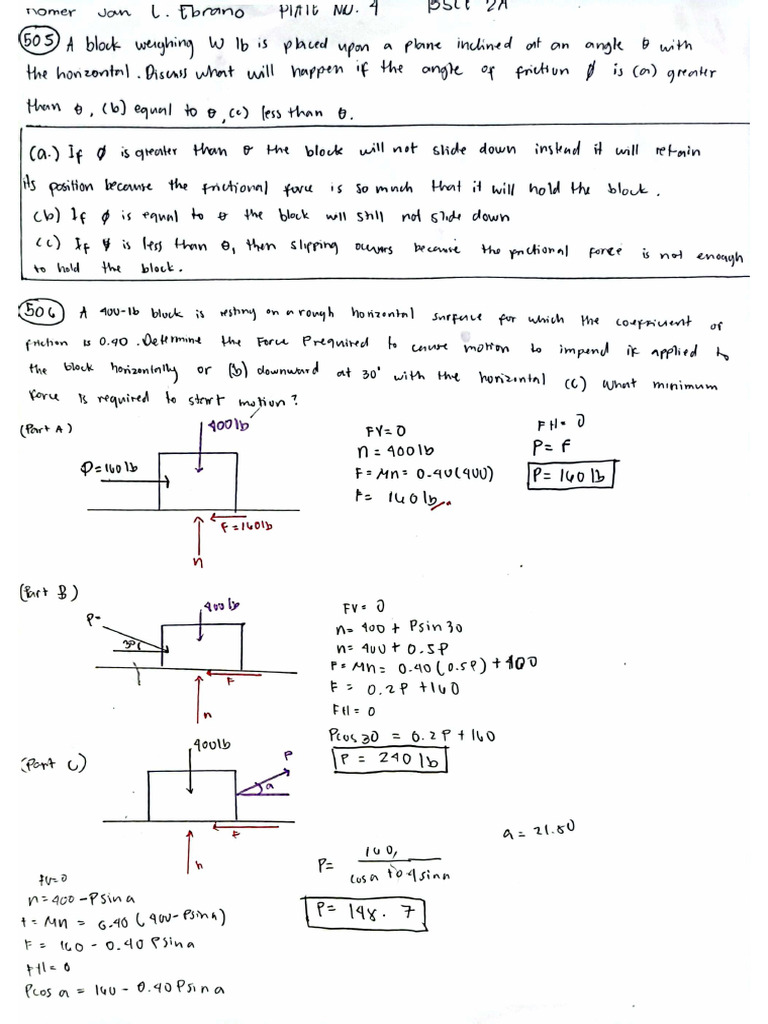 Nomer Jan L. Ebrano PLATE NO. 4 BSCE 2A
505 A block weighing W lb is placed upon a plane inclined at an angle θ with
the horizontal. Discuss what will happen if the angle of friction ϕ is (a) greater
than θ, (b) equal to θ, (c) less than θ.
(a.) If ϕ is greater than θ the block will not slide down instead it will retain
its position because the frictional force is so much that it will hold the block.
(b) If ϕ is equal to θ the block will still not slide down
(c) If ϕ is less than θ, then slipping occurs because the frictional force is not enough
to hold the block.
506 A 400-lb block is resting on a rough horizontal surface for which the coefficient of
friction is 0.40. Determine the Force P required to cause motion to impend if applied to
the block horizontally or (b) downward at 30° with the horizontal (c) What minimum
force is required to start motion?
(Part A)
400 lb
P=160 lb
F=160lb
n
FV=0
n = 400 lb
F = Mn = 0.40(400)
F = 160 lb
FH=0
P= F
P= 160 lb
(Part B)
400 lb
P=
30°
F
n
FV= 0
n= 400 + Psin30
n= 400 + 0.5P
F= Mn= 0.40(0.5P)+400
F = 0.2P +160
FH=0
Pcos30 = 0.2P +160
P = 240 lb
(Part C)
400lb
P
a
F
n
FV=0
n=400 -Psina
f= Mn = 0.40 (400-Psina)
F = 160 - 0.40 Psina
FH=0
Pcos a = 160 - 0.40Psina
a= 21.80
P= 160
P= 148.7